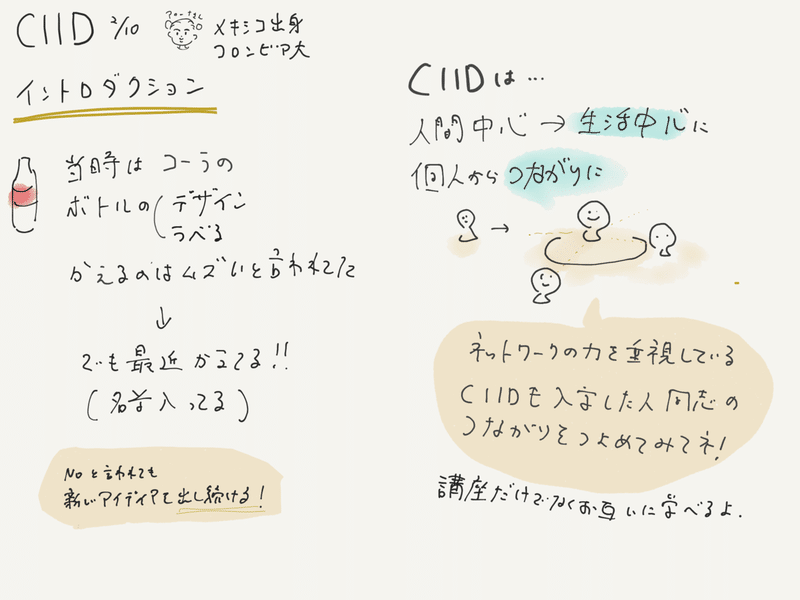 CIID 2/10
メキシコ出身
コロンビア大
イントロダクション
当時は コーラの
ボトルの(デザイン
らべる
かえるのはムズいと言われてた
↓
でも最近かえてる!!
(名前入ってる)
Noと言われても
新しいアイディアを出し続ける!
CIIDは…
人間中心→生活中心に
個人からつながりに
→
ネットワークの力を重視している
CIIDも入学した人同志の
つながりをつよめてみてネ!
講座だけでなくお互いに学べるよ.